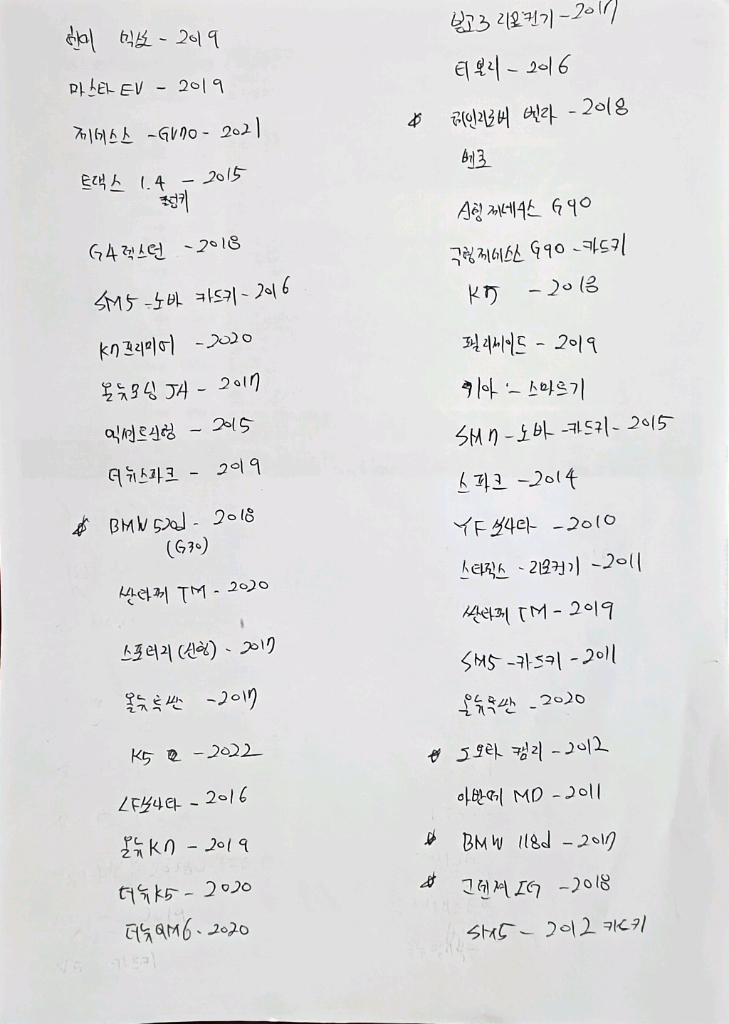 믹서 - 2019
마스타 EV - 2019
제네스스 - GV70 - 2021
트랙스 1.4 - 2015
폴딩키
G4 렉스턴 - 2018
SM5 - 노바 카드키 - 2016
K7 프리미어 - 2020
올뉴모닝 JA - 2017
엑센트신형 - 2015
더뉴스파크 - 2019
BMW 520d - 2018
(G30)
싼타페 TM - 2020
스포티지 (신형) - 2017
올뉴투싼 - 2017
K5 - 2022
LF쏘나타 - 2016
올뉴K7 - 2019
더뉴K5 - 2020
더뉴QM6 - 2020
봉고3 리모컨키 - 2017
티볼리 - 2016
레인지로버 벨라 - 2018
벤츠
신형제네시스 G90
구형제네스스 G90 - 카드키
K7 - 2018
펠리세이드 - 2019
기아 - 스마트키
SM7 - 노바 - 카드키 - 2015
스파크 - 2014
YF 쏘나타 - 2010
스타렉스 - 리모컨키 - 2011
싼타페 TM - 2019
SM5 - 카드키 - 2011
올뉴투싼 - 2020
도요타 캠리 - 2012
아반떼 MD - 2011
BMW 118d - 2017
그렌져 IG - 2018
SM5 - 2012 카드키